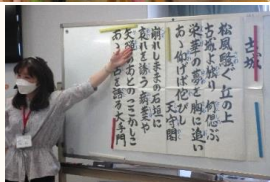 古城
松風騒ぐ 丘の上
古城よ独り 何偲ぶ
栄華の夢を 胸に追い
あゝ仰げば侘びし 天守閣
崩れしままの 石垣に
哀れを誘う 病葉や
矢弾のあとの ここかしこ
あゝ 古を語る 大手門